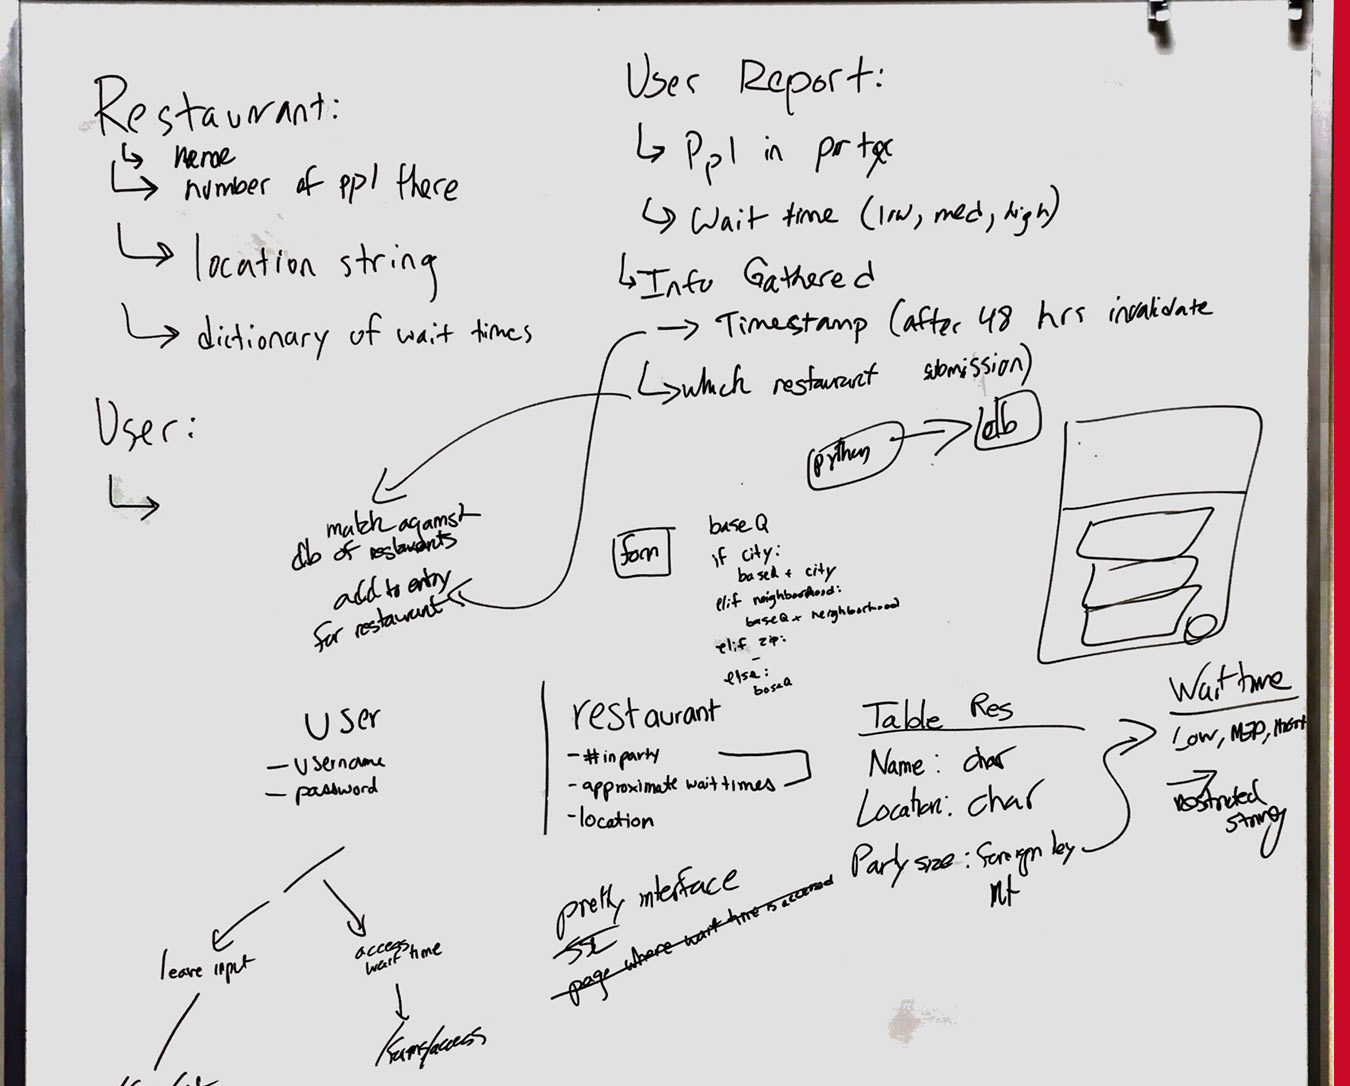 Restaurant:
name
number of ppl there
location string
dictionary of wait times
User:
User Report:
Ppl in party
Wait time (low, med, high)
Info Gathered
Timestamp (after 48 hrs invalidate
submission)
which restaurant
match against
db of restaurants
add to entry
for restaurant
python
db
form
baseQ
if city:
baseQ + city
elif neighborhood:
baseQ + neighborhood
elif zip:
else:
baseQ
User
- Username
- password
leave input
access
wait time
restaurant
- # in party
- approximate wait times
- location
pretty interface
page where wait time is accessed
Table Res
Name: char
Location: char
Party size: foreign key
Wait time
Low, MED,
restricted
string